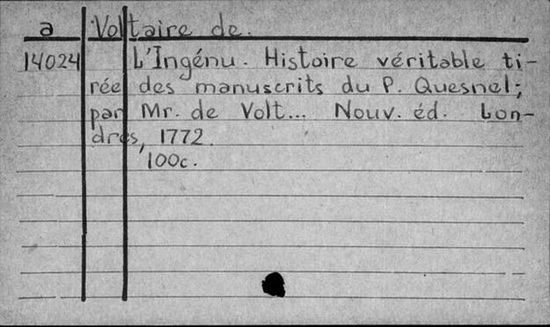 a Voltaire de.
14024 L'Ingénu. Histoire véritable ti-
rée des manuscrits du P. Quesnel;
par Mr. de Volt... Nouv. éd. Lon-
dres, 1772.
100c.